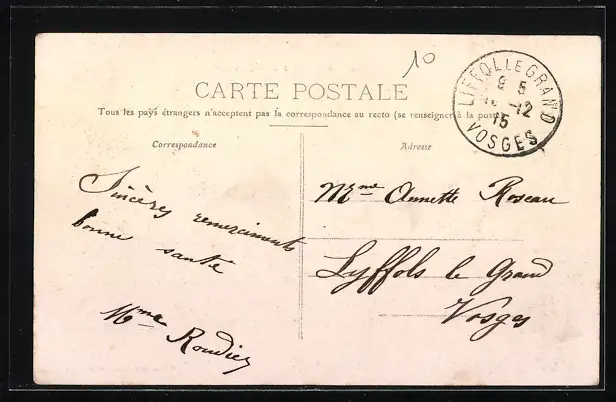 10
CARTE POSTALE
Tous les pays étrangers n'acceptent pas la correspondance au recto (se renseigner à la poste)
LIFFOL LE GRAND
9 5
-12
15
VOSGES
Correspondance
Sincères remerciments
bonne santé
Mme Roudier
Adresse
Mme Annette Roseau
Lyffols le Grand
Vosges